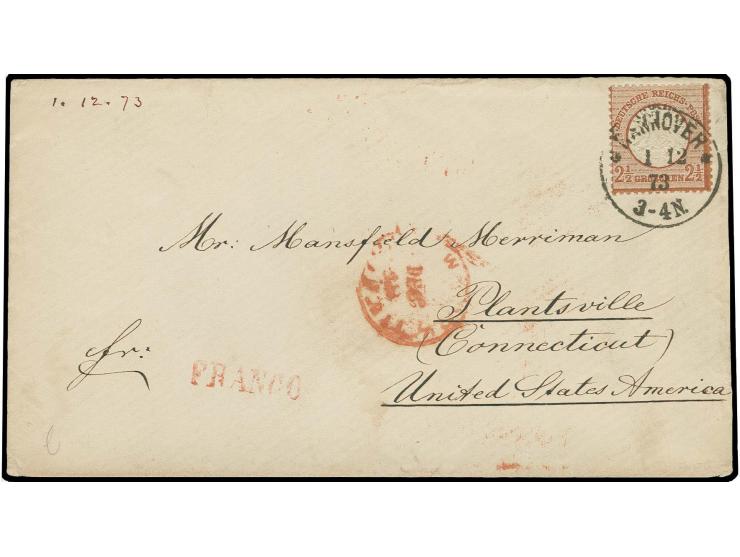 1. 12. 73
DEUTSCHE REICHS-POST
2½ GROSCHEN 2½
HANNOVER
1 12
73
3-4N.
Mr: Mansfield Merriman
Plantsville
(Connecticut)
United States America
fr:
FRANCO
DEC